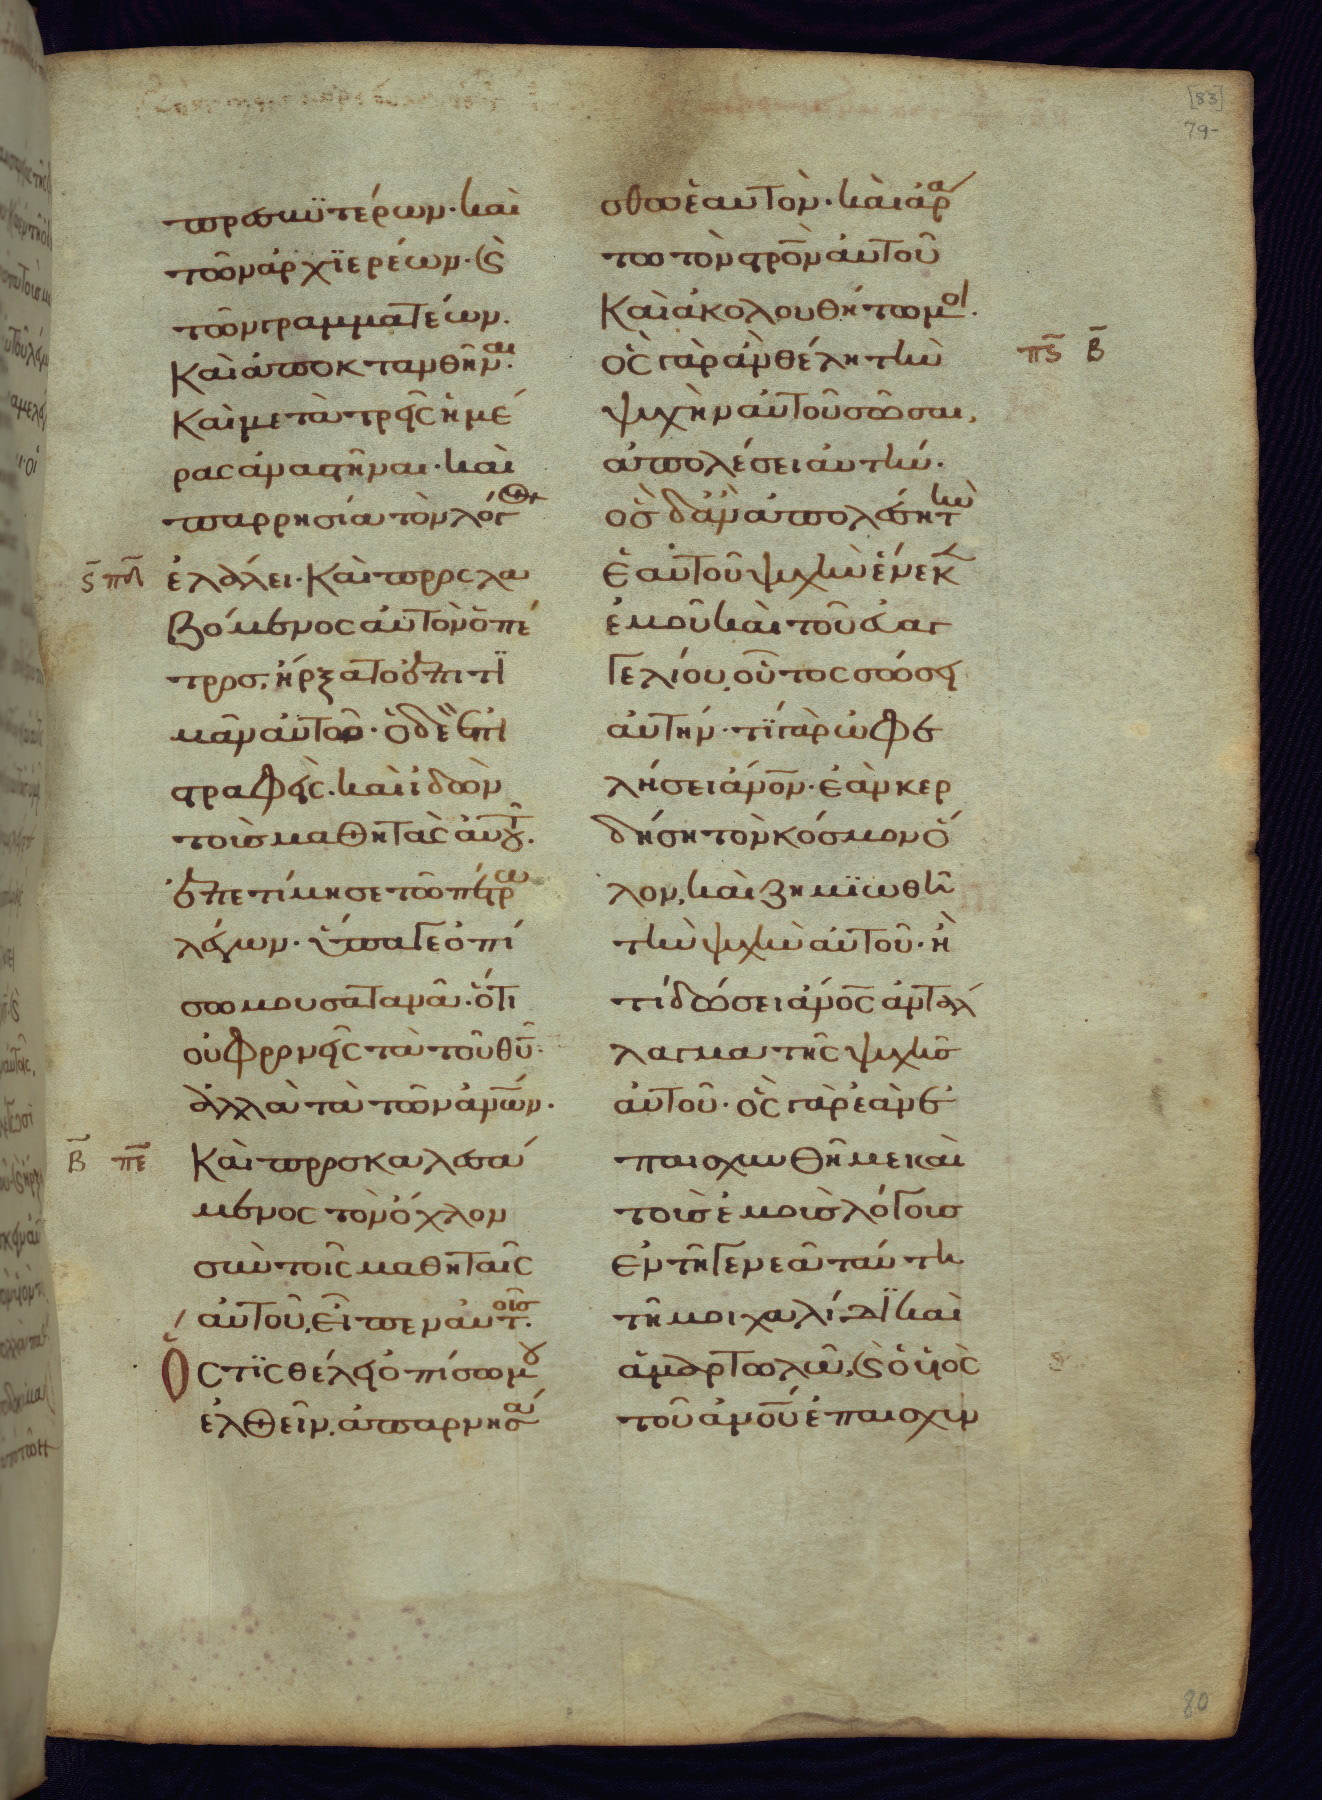 [83]
79-
πρεσβϋτέρων· καὶ
τῶν ἀρχϊερέων· ϛ̀
τῶν γραμματέων.
Καὶ ἀποκτανθῆναι.
Καὶ μετὰ τρεῖς ἡμέ
ρας ἀναστῆναι· καὶ
παρρησία τὸν λόγον
ς̄ πδ̄ ἐλάλει· Καὶ προσλα
βόμενος αὐτὸν ὁ πέ
τρος, ἤρξατο ἐπιτϊ
μᾶν αὐτῶ· ὁ δὲ ἐπι
στραφεὶς· καὶ ἰδὼν
τοὺς μαθητὰς αὐτοῦ.
ἐπετίμησε τῶ πέτρω
λέγων· ὕπαγε ὀπί
σω μου σατανᾶ· ὅτι
οὐ φρονεῖς τὰ τοῦ θῡ·
ἀλλὰ τὰ τῶν ἀνω̄ν·
β̄ πε̄ Καὶ προσκαλεσά
μενος τὸν ὄχλον
σὺν τοῖς μαθηταῖς
αὐτοῦ, εἶπεν αὐτοῖς.
Ὅστϊς θέλει ὀπίσω μου
ἐλθεῖν, ἀπαρνησά
σθω ἑαυτὸν· καὶ ἀρά
τω τὸν στρο̄ν αὐτοῦ
Καὶ ἀκολουθήτω μοι.
ὃς γὰρ ἂν θέλη τὴν πς̄ β̄
ψυχὴν αὐτοῦ σῶσαι,
ἀπολέσει αὐτήν·
ὃς δ' ἂν ἀπολέση τὴν
ἑαυτοῦ ψυχὴν ἕνεκεν
ἐμοῦ καὶ τοῦ εὐαγ
γελίου, οὗτος σώσει
αὐτήν· τί γὰρ ὠφε
λήσει ἀνο̄ν· ἐὰν κερ
δήση τὸν κόσμον ὅ
λον, καὶ ζημϊωθῆ
τὴν ψυχὴν αὐτοῦ· ἢ
τί δώσει ἀνο̄ς ἀντάλ
λαγμα τῆς ψυχῆς
αὐτοῦ· ὃς γὰρ ἐὰν ἐ
παισχυνθῆ με καὶ
τοὺς ἐμοὺς λόγους
ἐν τῆ γενεᾶ ταύτη
τῆ μοιχαλίδϊ καὶ
ἁμαρτωλῶ, ϛ̀ ὁ υἱὸς
τοῦ ἀνο̄υ ἐπαισχυν
80